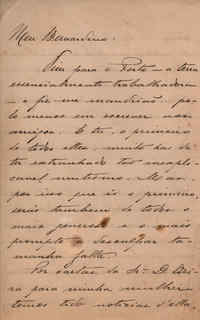 Meu Bernardino:
Vim para o Porto – a terra
essencialmente trabalhadora
– e fiz-me mandrião, pe-
lo menos em escrever aos
amigos. E tu, o primeiro
de todos elles, muito has de
ter extranhado tão inexpli-
cavel mutismo. Mas
por isso que és o primeiro,
serás tambem de todos o
mais generoso e o mais
prompto a desculpar ta-
manha falta.
Por cartas da Sr.ª D.
ra para minha mulher
temos tido noticias d'ella